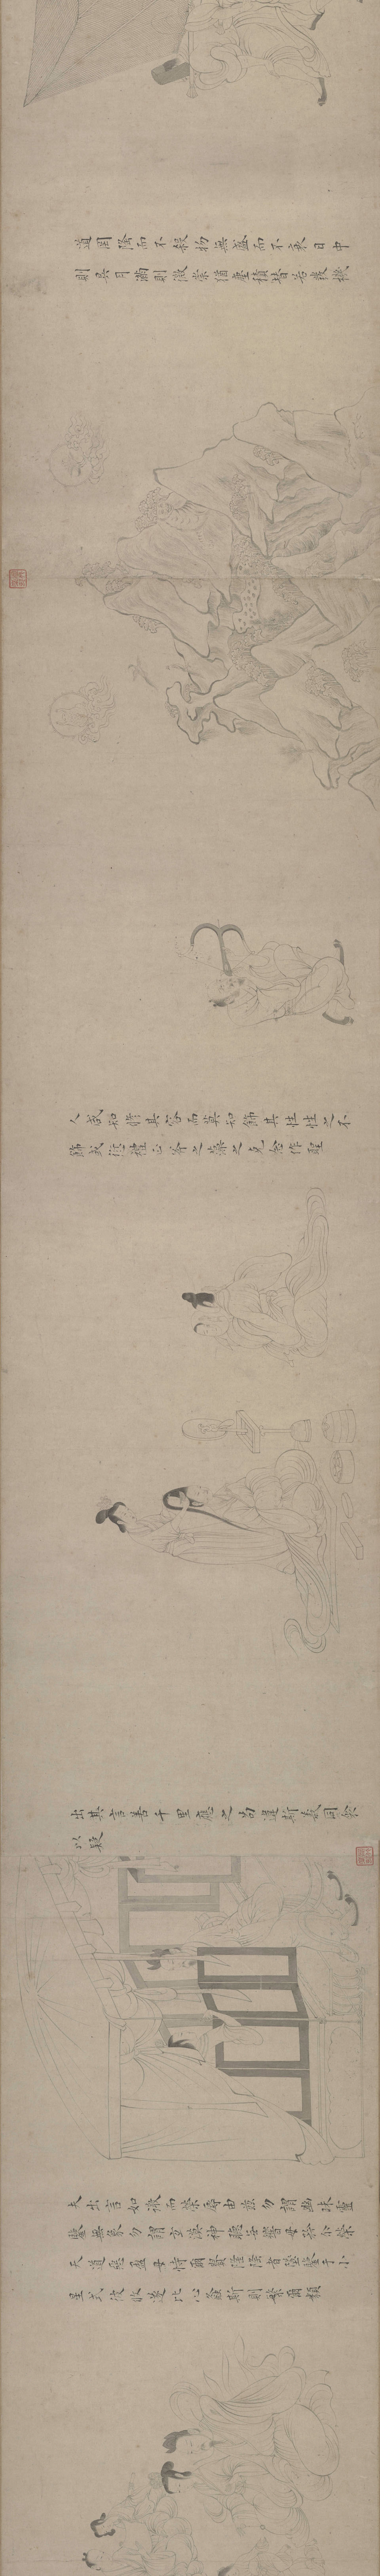 道罔隆而不殺物無盛而不衰日中
則昃月滿則微崇猶塵積替若駭機
人咸知修其容而莫知飾其性性之不
飾或愆禮正斧之藻之克念作聖
出其言善千里應之苟違斯義同衾
以疑
夫出言如微而榮辱由茲勿謂幽昧靈
鑒無象勿謂玄漠神聽無響毋矜尔榮
天道惡盈毋恃爾貴隆隆者墜鑒于小
星戒彼攸遂比心螽斯則繁爾類